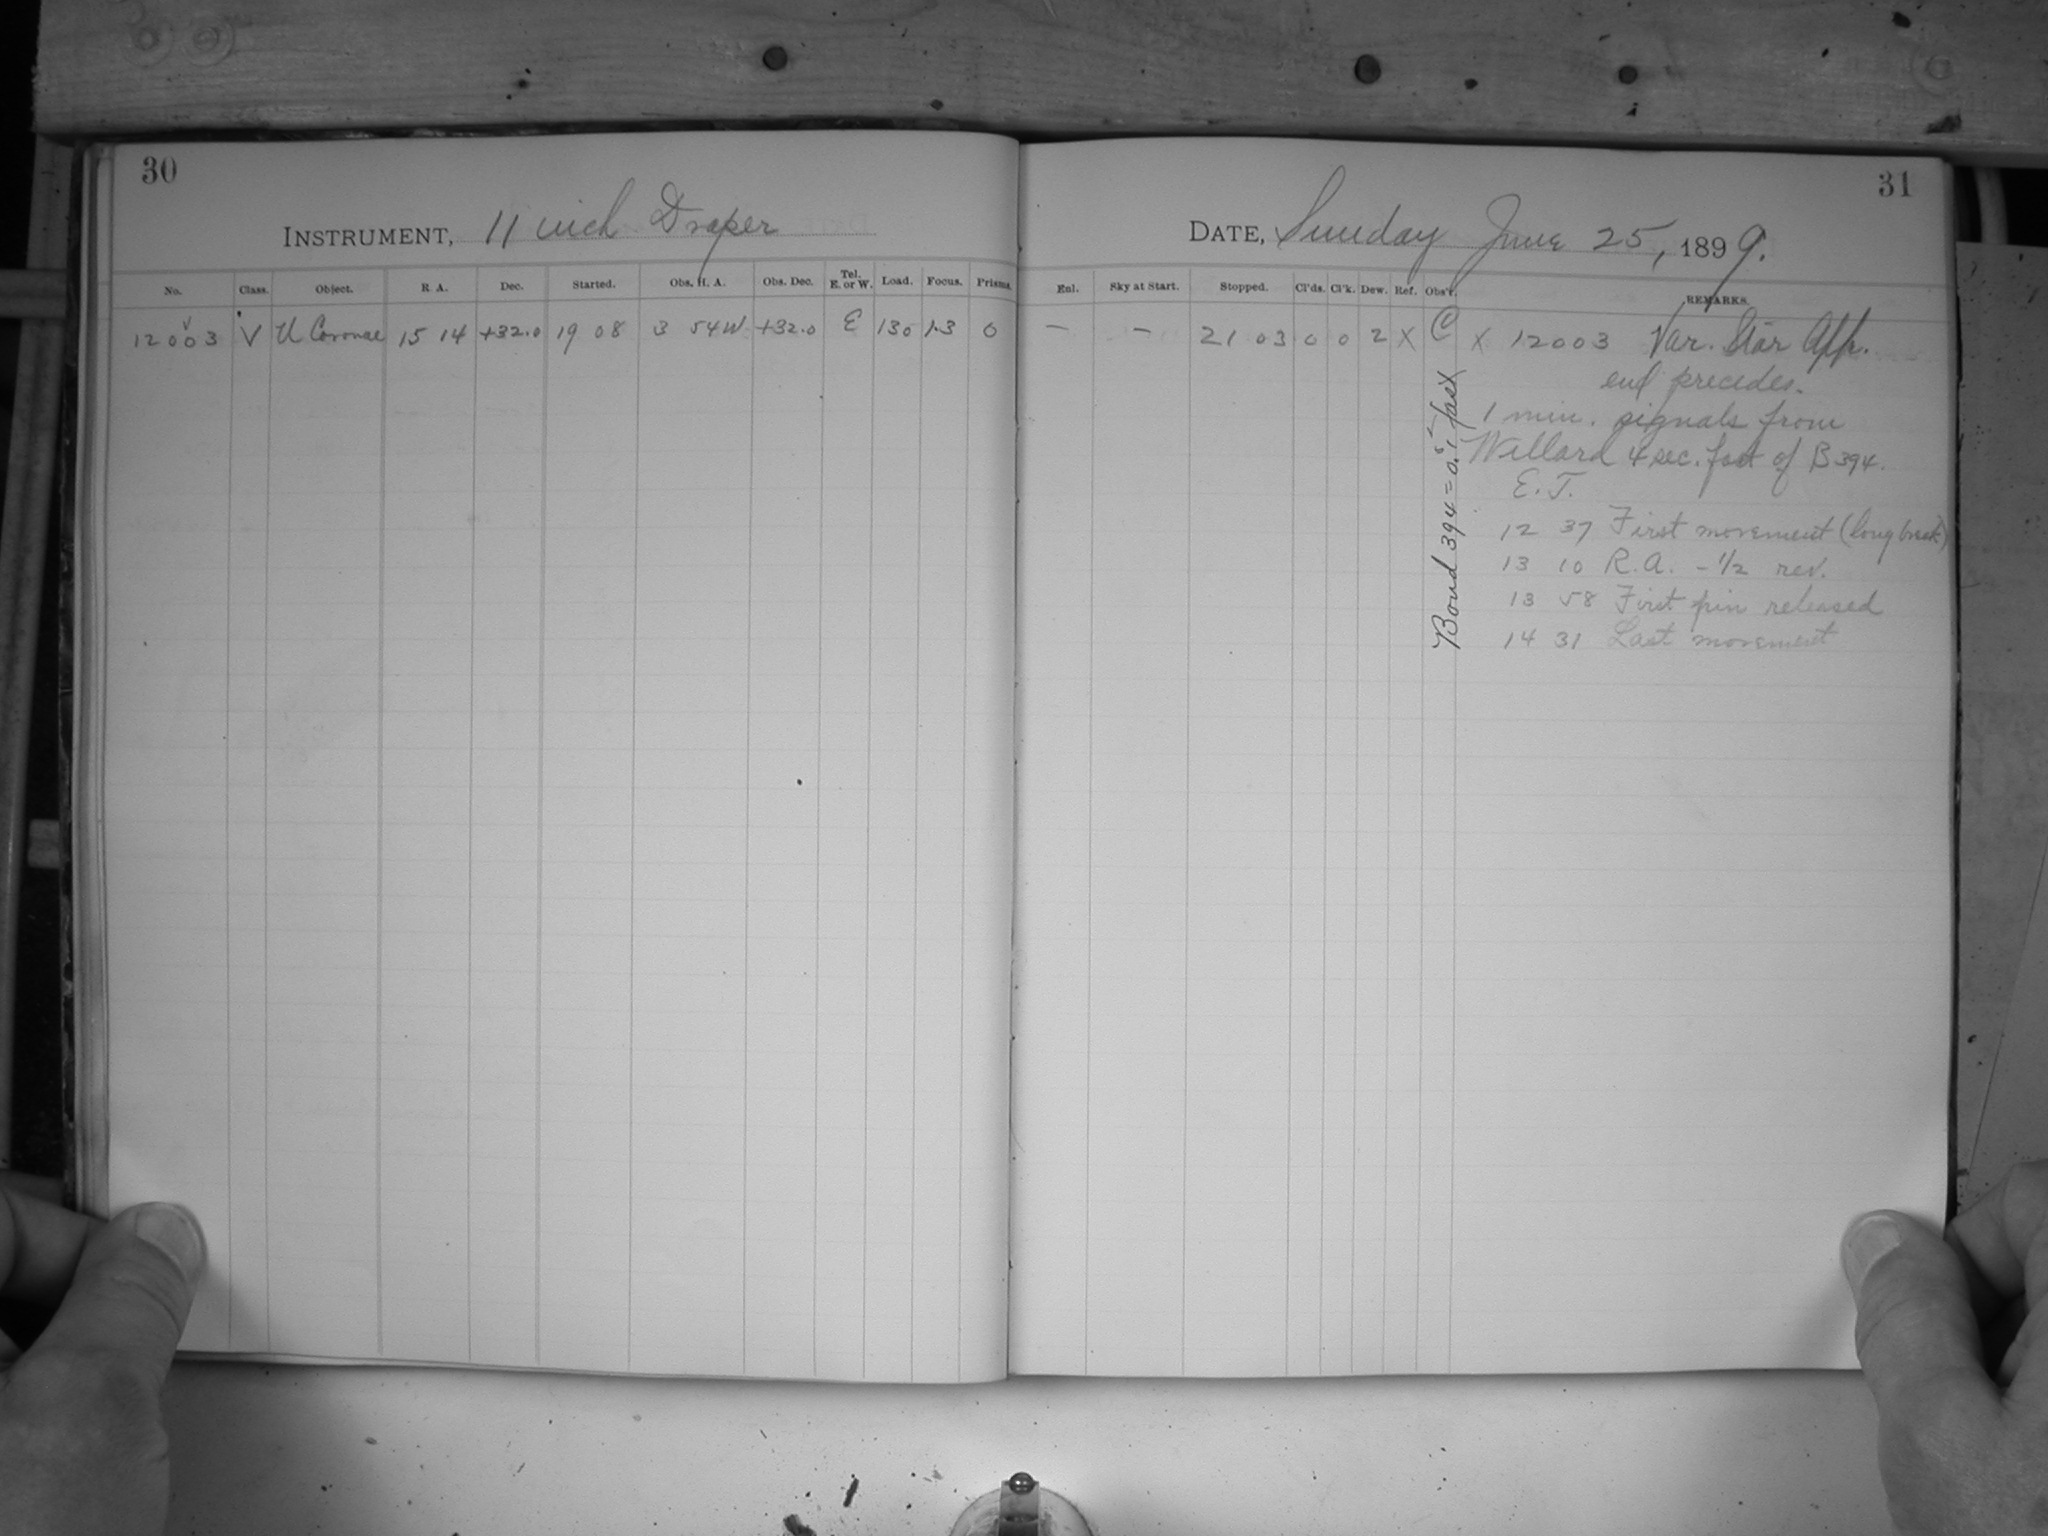 30
INSTRUMENT, 11 inch Draper
No. Class. Object. R A. Dec. Started. Obs. H. A. Obs. Dec. Tel. E. or W. Load. Focus. Prisms.
12003 V U Coronae 15 14 +32.0 19 08 3 54W +32.0 E 130 1.3 0
31
DATE, Sunday June 25, 1899.
Enl. Sky at Start. Stopped. Cl'ds. Cl'k. Dew. Ref. Obs'r. REMARKS.
— — 21 03 0 0 2 X C X 12003 Var. Star App.
end precedes.
1 min. signals from
Willard 4 sec. fast of B 394.
E. T.
12 37 First movement (long break)
13 10 R.A. - 1/2 rev.
13 58 First pin released
14 31 Last movement
Bond 394 = 0.1 fast